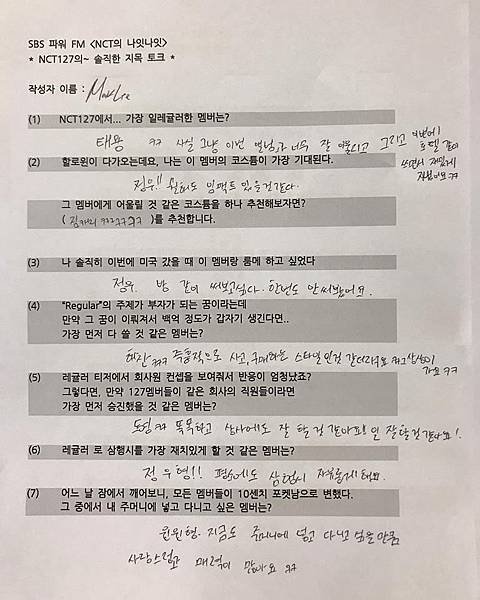 SBS 파워 FM <NCT의 나잇나잇>
* NCT127의~ 솔직한 지목 토크 *
작성자 이름 : Mark Lee
(1) NCT127에서... 가장 일레귤러한 멤버는?
태용 ㅋㅋ 사실 그냥 이번 컨셉과 너무 잘 어울리고 그리고 이번에
호텔 같이
쓰면서 재밌게
지냈어요 ㅋㅋ
(2) 할로윈이 다가오는데요, 나는 이 멤버의 코스튬이 가장 기대된다.
정우!! 뭘해도 임팩트 있을것같다.
그 멤버에게 어울릴 것 같은 코스튬을 하나 추천해보자면?
( ㅋㅋㅋㅋㅋ )를 추천합니다.
(3) 나 솔직히 이번에 미국 갔을 때 이 멤버랑 룸메 하고 싶었다
정우. 방 같이 써보고싶다. 한번도 안써봤어요.
(4) "Regular"의 주제가 부자가 되는 꿈이라는데
만약 그 꿈이 이뤄져서 백억 정도가 갑자기 생긴다면..
가장 먼저 다 쓸 것 같은 멤버는?
해찬 ㅋㅋ 충동적으로 사고, 구매하는 스타일인것 같더라구요 최고 상상이
가요 ㅋㅋ
(5) 레귤러 티저에서 회사원 컨셉을 보여줘서 반응이 엄청났죠?
그렇다면, 만약 127멤버들이 같은 회사의 직원들이라면
가장 먼저 승진했을 것 같은 멤버는?
도영 ㅋㅋ 똑똑하고 상사에도 잘 할 것 같아요! 일 잘할것 같아요!
(6) 레귤러 로 삼행시를 가장 재치있게 할 것 같은 멤버는?
정우형!! 평소에도 삼행시 자유롭게 해요.
(7) 어느 날 잠에서 깨어보니, 모든 멤버들이 10센치 포켓남으로 변했다.
그 중에서 내 주머니에 넣고 다니고 싶은 멤버는?
윈윈형. 지금도 주머니에 넣고 다니고 싶을 만큼
사랑스럽고 매력이 많아요 ㅋㅋ